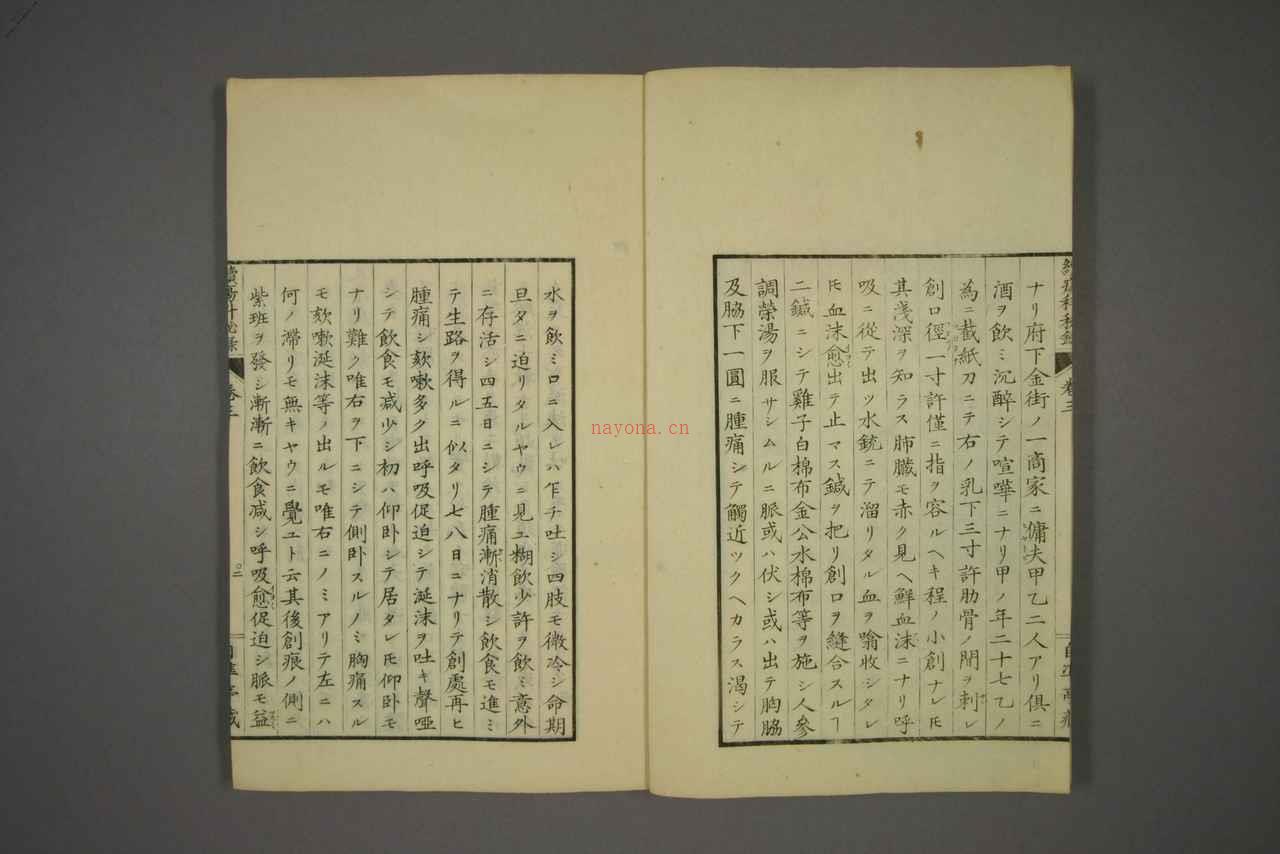 ナリ府下金街ノ一商家ニ傭夫甲乙二人アリ俱ニ
酒ヲ飲ミ沉醉シテ喧嘩ニナリ甲ノ年二十七乙ノ
為ニ截紙刀ニテ右ノ乳下三寸許肋骨ノ間ヲ刺レ
創口徑一寸許僅ニ指ヲ容ルヘキ程ノ小創ナレ𪜈
其淺深ヲ知ラス肺臓モ赤ク見ヘ鮮血沫ニナリ呼
吸ニ從テ出ツ水銃ニテ溜リタル血ヲ噏收シタレ
𪜈血沫愈出テ止マス鍼ヲ把リ創口ヲ縫合スルヿ
二鍼ニシテ雞子白棉布金公水棉布等ヲ施シ人參
調榮湯ヲ服サシムルニ脈或ハ伏シ或ハ出テ胸脇
及脇下一圓ニ腫痛シテ觸近ツクヘカラス渴シテ
卷三
水ヲ飲ミ口ニ入レハ乍チ吐シ四肢モ微冷シ命期
旦タニ迫リタルヤウニ見ユ糊飲少許ヲ飲ミ意外
ニ存活シ四五日ニシテ腫痛漸消散シ飲食モ進ミ
テ生路ヲ得ルニ似タリ七八日ニナリテ創處再ヒ
腫痛シ欬嗽多ク出呼吸促迫シテ涎沫ヲ吐キ聲啞
シテ飲食モ減少シ初ハ仰卧シテ居タレ𪜈仰卧モ
ナリ難ク唯右ヲ下ニシテ側卧スルノミ胸痛スル
モ欬嗽涎沫等ノ出ルモ唯右ニノミアリテ左ニハ
何ノ滯リモ無キヤウニ覺ユト云其後創痕ノ側ニ
紫斑ヲ發シ漸漸ニ飲食減シ呼吸愈促迫シ脈モ益
卷三
二
nayona.cn